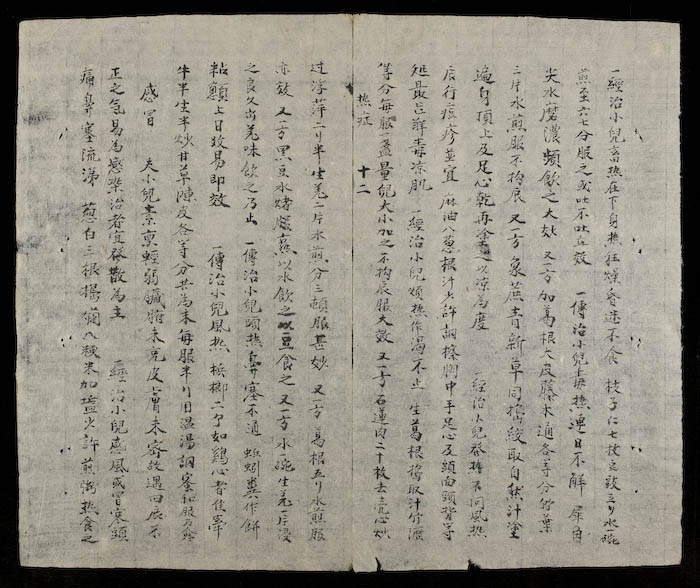 一經治小兒畜熱在下身熱狂燥昏迷不食 枝子仁七枝豆豉五水一碗
煎至六七分服之或吐不吐立效 一傳治小兒壮熱連日不解 犀角
尖水磨濃頻飲之大效 又一方加葛根大皮藤木通各等分竹葉
二片水煎服不拘辰 又一方青新草同搗絞取自然汁塗
遍身頂上及足心乾再塗之以凉為度 一經治小兒發風熱
辰行痘疹並宜 麻油入葱根汁少許調擦胸中手足心及頭面頭背等
処最解毒凉肌 一經治小兒煩熱作渴不止 生葛根搗取汁竹瀝
等分每服一盞量兒大小加之不拘辰服大效 又一方石蓮肉二十枚去心炒
熱症 十二
过浮萍一半生羌二片水煎分三頓服甚妙 又一方葛根五水煎服
亦效 又一方黑豆水爛蒸以水飲之以豆食之 又一方水一碗生羌一片浸
之良久出羌味飲之乃止 一傳治小兒頭熱鼻塞不通 蚯蚓糞作餅
粘顖上日改易即效 一傳治小兒風熱 梹榔二个如鷄心者佳牽
牛半生半炒甘草陳皮各等分共為末每服半用温湯調蜜和服
感冒 夫小兒素禀輕弱臟腑未充皮膚未密故遇四辰不
正之氣易為感染治者宜發散為主 一經治小兒感風或冒寒頭
痛鼻塞流涕 葱白三根搗爛入粳米加塩少許煎粥热食之